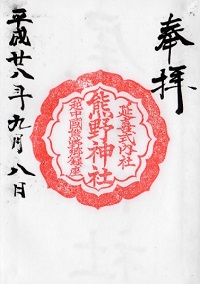 奉拝
延喜式内社
熊野神社
越中國熊野郷鎮座
平成廿八年九月八日